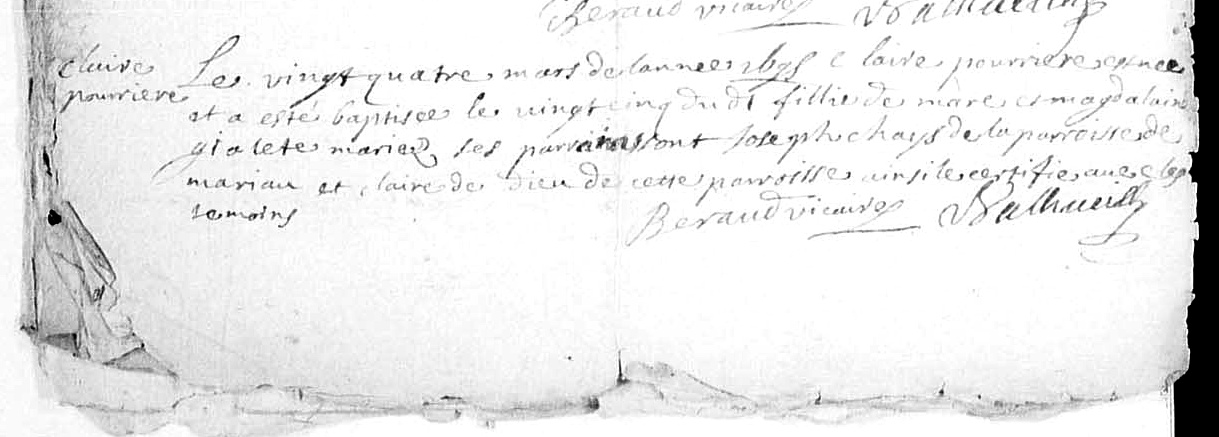 Beraud vicaire
Claire
pourriere
Le vingt quatre mars de lannee 1695 Claire pourriere est nee
et a esté baptisée le vingt cinq dudt fillie de marc et magdalaine
gialete mariez ses parrains sont Joseph chays de la parroisse de
mariau et claire de Dieu de cette parroisse ainsi le certifie avec les
temoins
Beraud vicaire